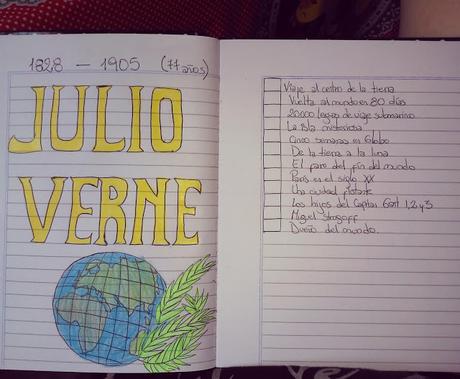 1828 - 1905 (77 años)
JULIO
VERNE
Viaje al centro de la tierra
Vuelta al mundo en 80 días
20000 leguas de viaje submarino
La Isla misteriosa
Cinco semanas en Globo
De la tierra a la luna
El faro del fin del mundo
París en el siglo XX
Una ciudad flotante
Los hijos del Capitan Grant 1,2 y 3
Miguel Strogoff
Dueño del mundo.